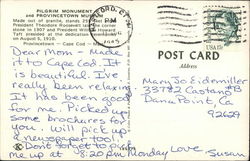 PILGRIM MONUMENT
and PROVINCETOWN M
Made out of granite, stands
President Theodore Roosevelt
stone in 1907 and President William Howard
Taft presided at the dedication
on August 5, 1910.
Provincetown — Cape Cod —
PM
1985
USA
POST CARD
Address
Dear Mom - Made
it to Cape Cod. It
is beautiful. I've
really been relaxing.
It has been good
for me. Picked
some brochures for
you. will pick up
newspaper too.
Don't forget to pick
me up at 8:20 pm Monday Love Susan
Mary Jo Eidemiller
33782 Castano
Dana Point, Ca
92629